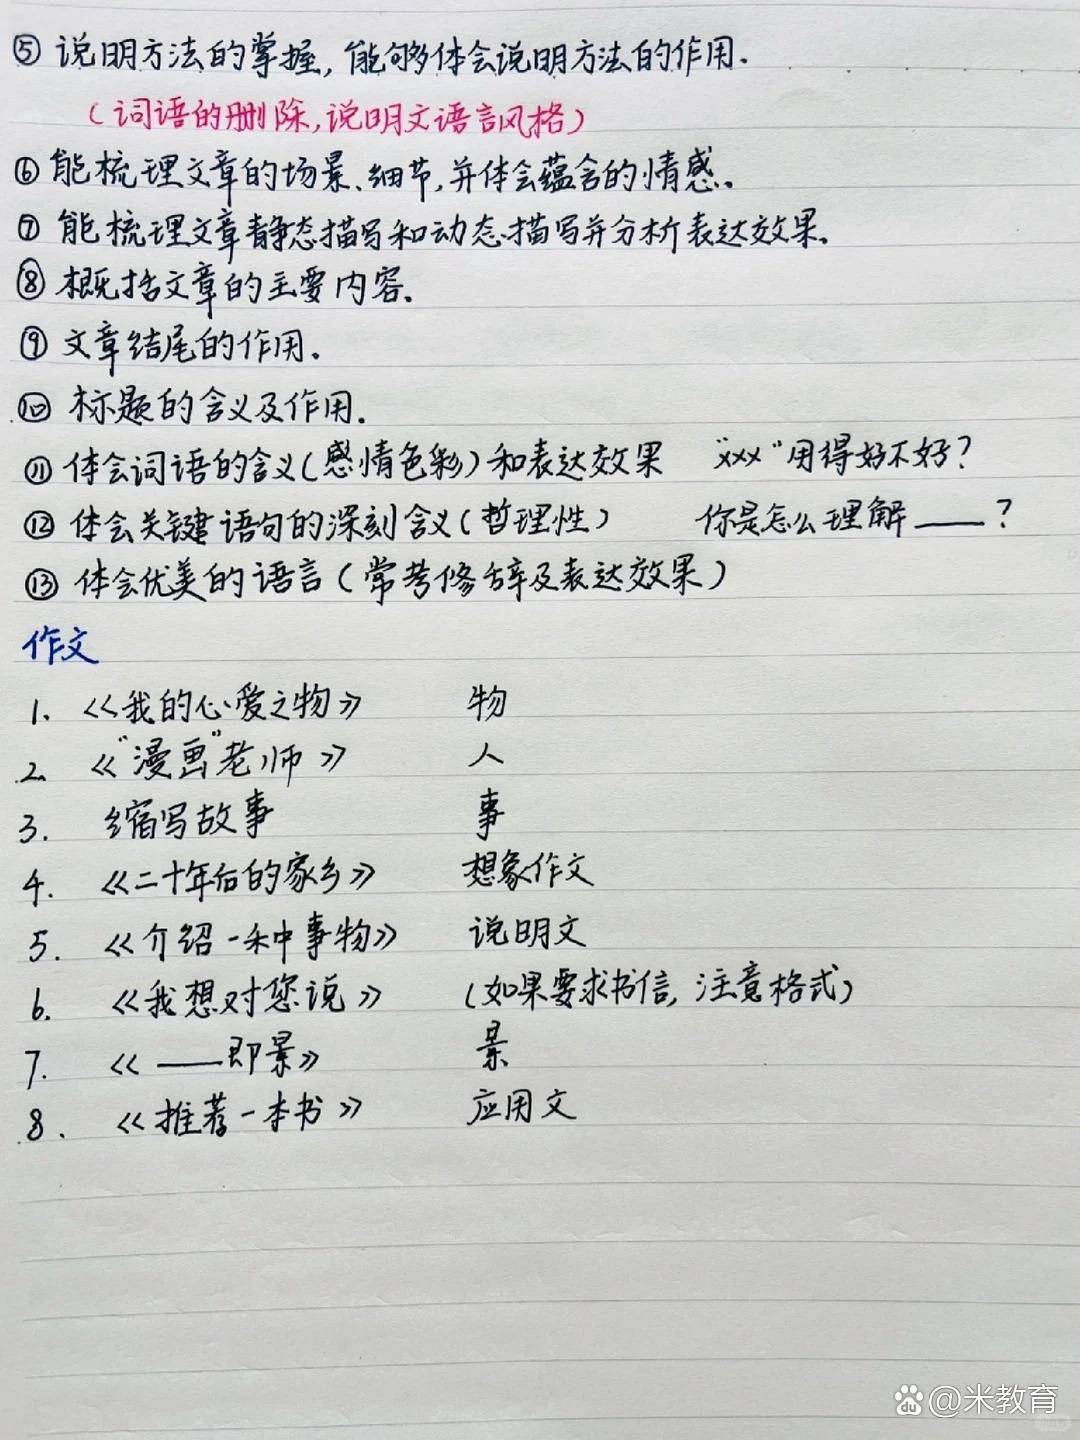 ⑤ 说明方法的掌握,能够体会说明方法的作用.
(词语的删除,说明文语言风格)
⑥ 能梳理文章的场景、细节,并体会蕴含的情感。
⑦ 能梳理文章静态描写和动态描写并分析表达效果。
⑧ 概括文章的主要内容.
⑨ 文章结尾的作用.
⑩ 标题的含义及作用.
⑪ 体会词语的含义(感情色彩)和表达效果 "xxx"用得好不好?
⑫ 体会关键语句的深刻含义(哲理性) 你是怎么理解____?
⑬ 体会优美的语言(常考修辞及表达效果)
作文
1. 《我的心爱之物》 物
2. 《"漫画"老师》 人
3. 缩写故事 事
4. 《二十年后的家乡》 想象作文
5. 《介绍一种事物》 说明文
6. 《我想对您说》 (如果要求书信,注意格式)
7. 《____即景》 景
8. 《推荐一本书》 应用文
du @米教育